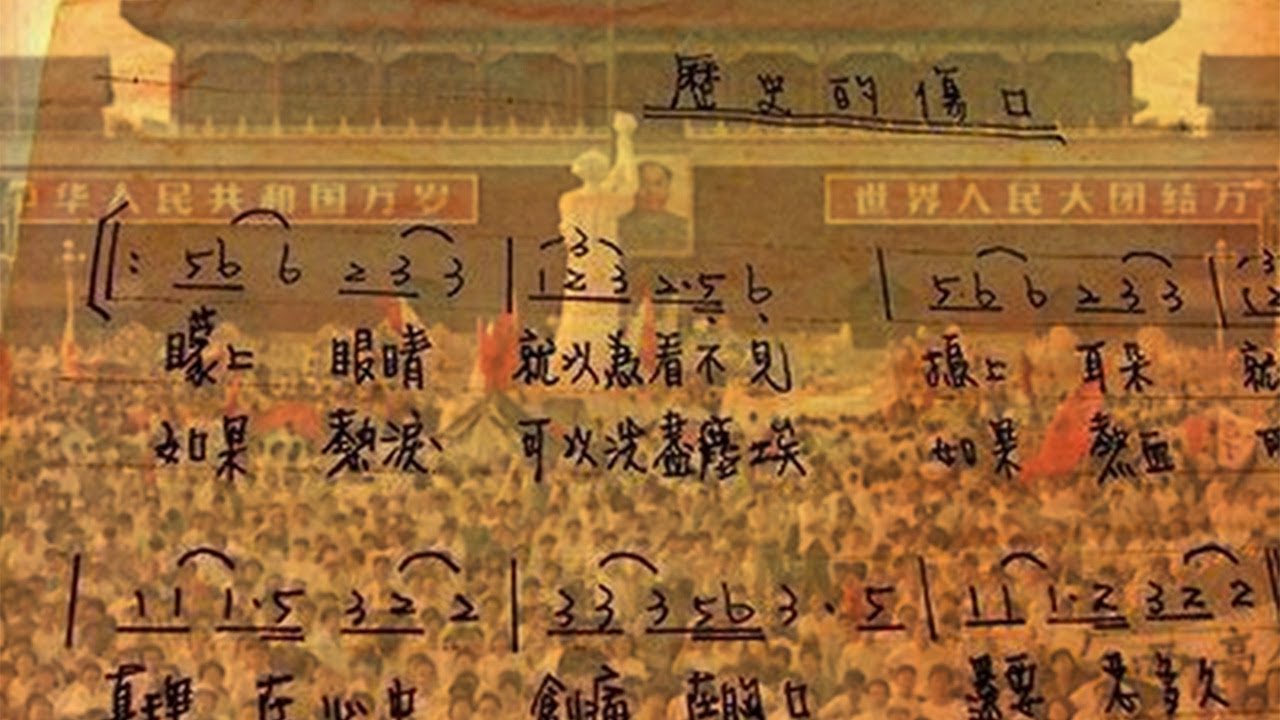 歷史的傷口
中华人民共和国万岁
世界人民大团结万
56 6 2 3 3 | 1 2 3 2·5 6 | 5·6 6 2 3 3 |
矇上 眼睛 就以為看不見 摀上 耳朵 就
如果 熱淚 可以洗盡塵埃 如果 熱血 可
| 1 1 1·5 3 2 2 | 3 3 3 5 6 3 · 5 | 1 1 1·2 3 2 2 |
真理 在心中 創痛 在胸口 還要 忍多久